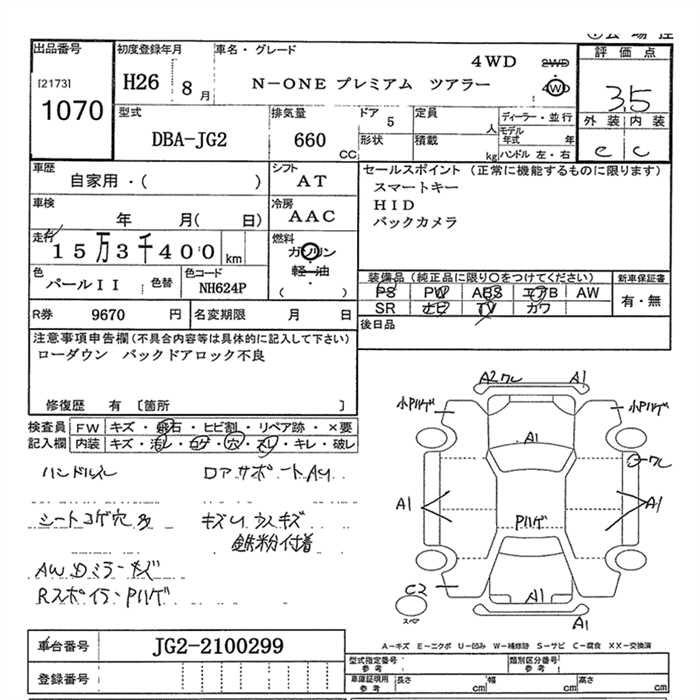 出品番号
[2173]
1070
初度登録年月
H26 8月
車名・グレード
4WD
N-ONE プレミアム ツアラー
2WD
4WD
評価点
3.5
外装 内装
e c
型式
DBA-JG2
排気量
660 CC
ドア 5
形状
定員 人
積載 kg
ディーラー・並行
モデル年式 年
ハンドル 左・右
車歴
自家用・( )
シフト
AT
セールスポイント (正常に機能するものに限ります)
スマートキー
HID
バックカメラ
車検
年 月( 日)
冷房
AAC
走行
15万3千400 km
燃料
ガソリン
軽油
( )
色
パールII
色替
色コード
NH624P
装備品 (純正品に限り○をつけてください)
新車保証書
PS PW ABS エアB AW
SR ナビ TV カワ
有・無
R券 9670 円
名変期限 月 日
後日品
注意事項申告欄(不具合内容等は具体的に記入して下さい)
ローダウン バックドアロック不良
修復歴 有 〔箇所 〕
検査員記入欄
FW キズ・飛石・ヒビ割・リペア跡・×要
内装 キズ・汚レ・コゲ・穴・スレ・キレ・破レ
ハンドルスレ
ロアサポートAU
シートコゲ穴多
キズU ウスキズ
鉄粉付着
AW Dミラーキズ
RスポイラーPハゲ
A2 ワレ A1
小Pハゲ 小Pハゲ
A1
ワレ
A1 A1
Pハゲ
C2
スペア
A1
A1
車台番号
JG2-2100299
登録番号
A-キズ E-エクボ U-凹み W-補修跡 S-サビ C-腐食 XX-交換済
型式指定番号
参考
類別区分番号
参考
車庫証明用
参考
長さ cm
幅 cm
高さ cm